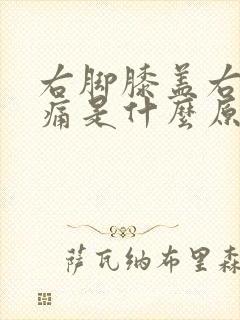 右脚膝盖右
痛是什麼原
萨瓦纳布里森